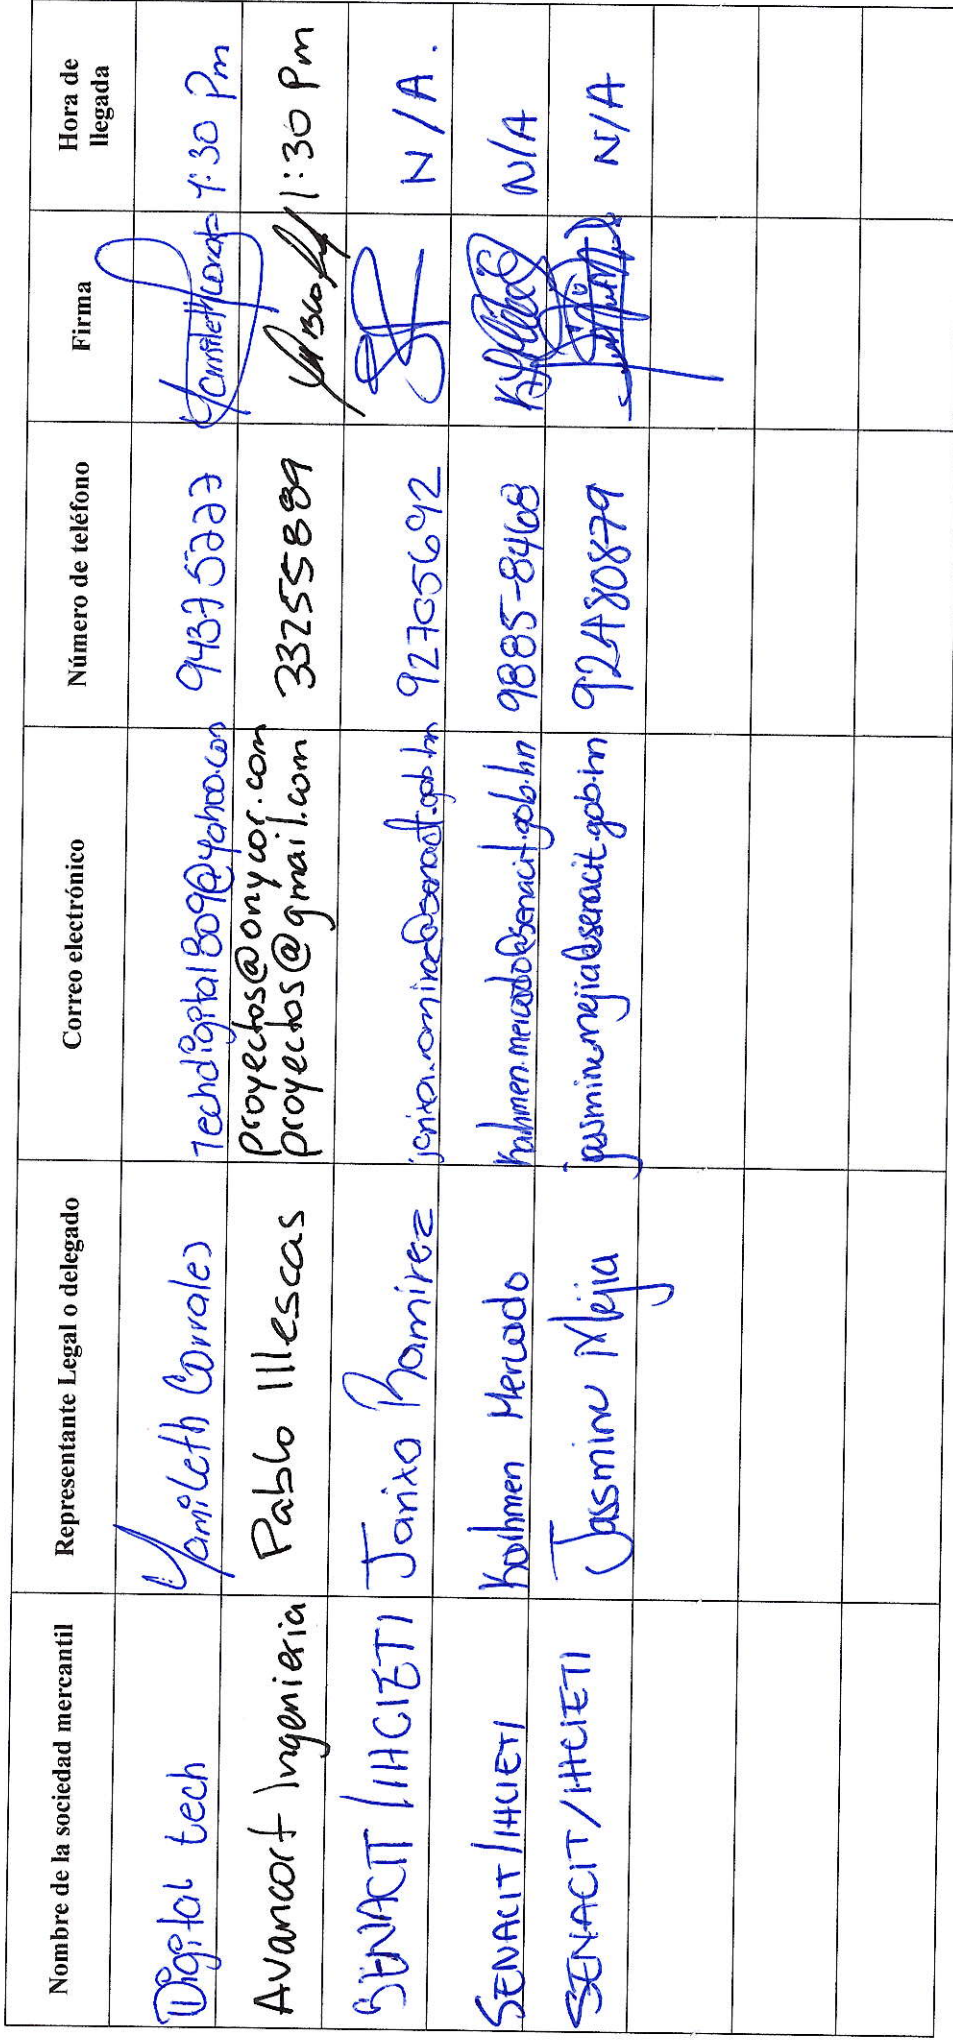 Nombre de la sociedad mercantil Representante Legal o delegado Correo electrónico Número de teléfono Firma Hora de llegada
Digital tech Yamileth Corrales techdigital809@yahoo.com 94375227 1:30 Pm
Avancort Ingenieria Pablo Illescas proyectos@onycor.com 33255889 1:30 Pm
proyectos@gmail.com
SENACIT/IHCIETI Janixa Ramirez 92705692 N/A.
SENACIT/IHCIETI Kahmen Mercado kahmen.mercado@senacit.gob.hn 9885-8468 N/A
SENACIT/IHCIETI Jassmine Mejia jassmine.mejia@senacit.gob.hn 92480879 N/A